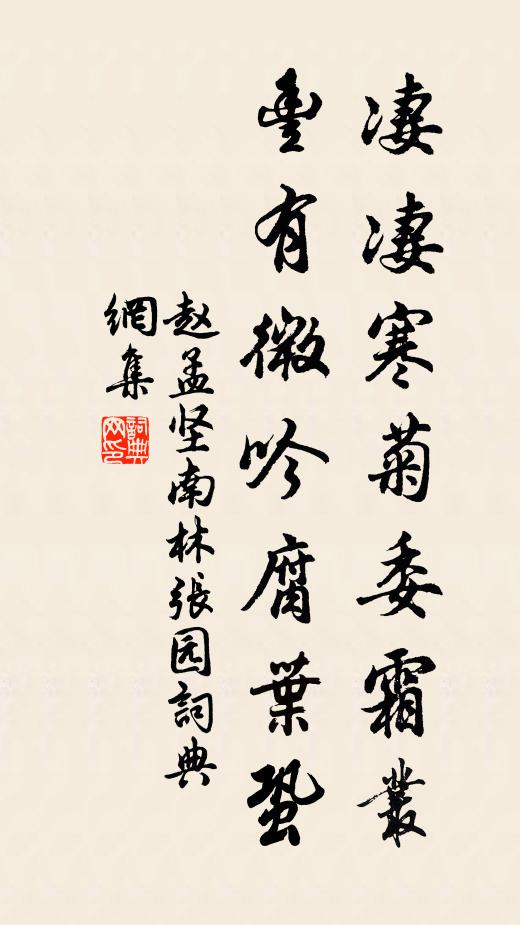 凄凄寒菊委霜叢
豈有微吟腐葉蛩
赵孟坚南林張园詞典
網集
詞典
网印